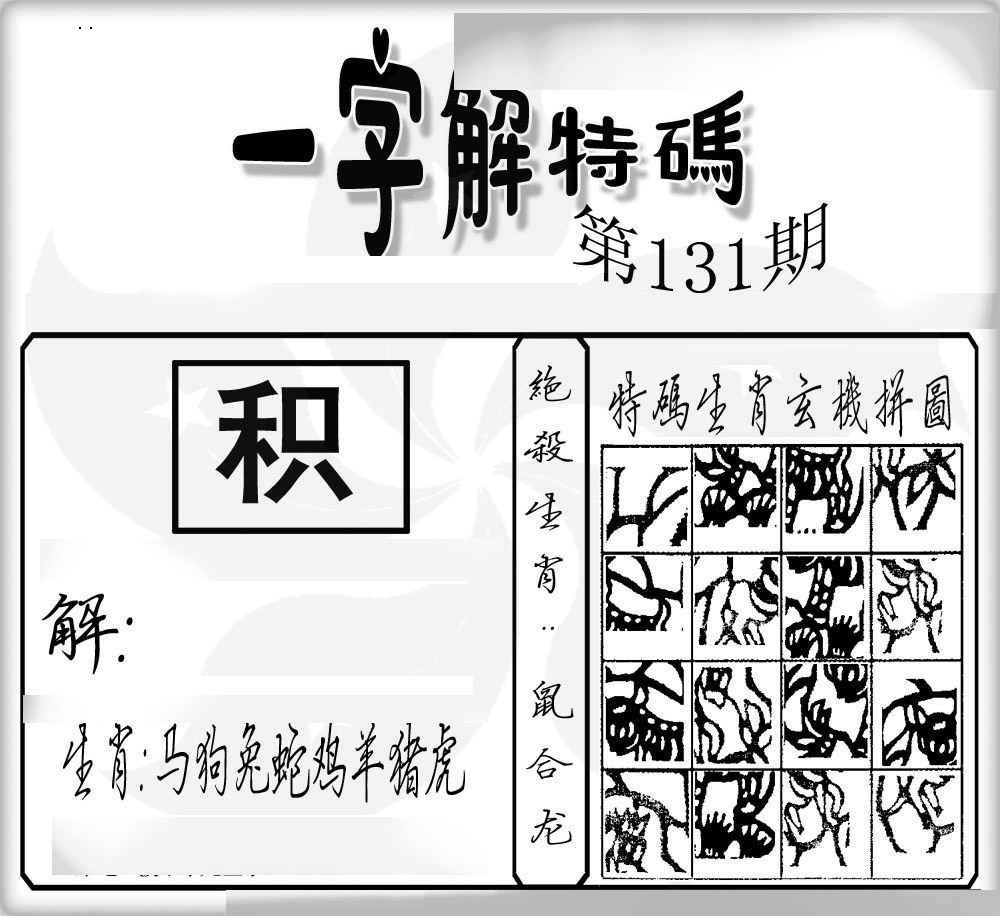 一字解特碼
第131期
积
解:
生肖:马狗兔蛇鸡羊猪虎
絶殺生肖:鼠合龙
特碼生肖玄機拼圖